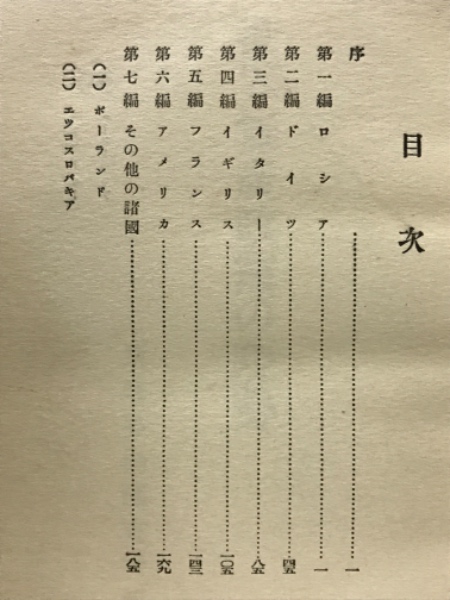 目次
序……一
第一編 ロシア……一
第二編 ドイツ……四五
第三編 イタリー……八五
第四編 イギリス……一〇五
第五編 フランス……一四三
第六編 アメリカ……一六九
第七編 その他の諸國……一八五
(一) ポーランド
(二) エツコスロバキア